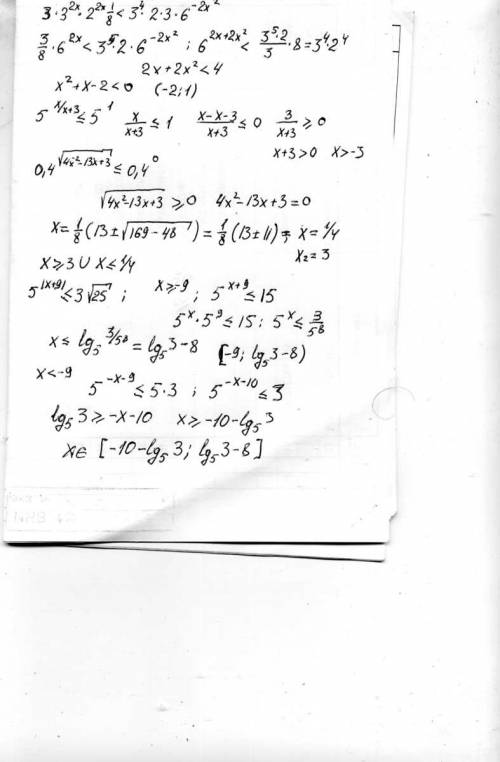 3·3^2x·2^2x 1/8 < 3^4·2·3·6^-2x^2
3/8·6^2x < 3^5·2·6^-2x^2 ; 6^2x+2x^2 < 3^5·2/3·8=3^4·2^4
2x+2x^2<4
x^2+x-2<0 (-2;1)
5^x/x+3 ≤ 5^1 x/x+3 ≤ 1 x-x-3/x+3 ≤ 0 3/x+3 ≥ 0
x+3>0 x>-3
0,4^√4x^2-13x+3 ≤ 0,4^0
√4x^2-13x+3 ≥ 0 4x^2-13x+3=0
x=1/8(13±√169-48)=1/8(13±11); x=1/4
x2=3
x≥3 ∪ x≤1/4
5^|x+9| ≤ 3√25 ; x≥-9 ; 5^x+9 ≤ 15
5^x·5^9 ≤ 15; 5^x ≤ 3/5^8
x ≤ lg5 3/5^8 = lg5 3-8 [-9; lg5 3-8)
x<-9 5^-x-9 ≤ 5·3 ; 5^-x-10 ≤ 3
lg5 3 ≥ -x-10 x ≥ -10-lg5 3
x∈ [-10-lg5 3; lg5 3-8]